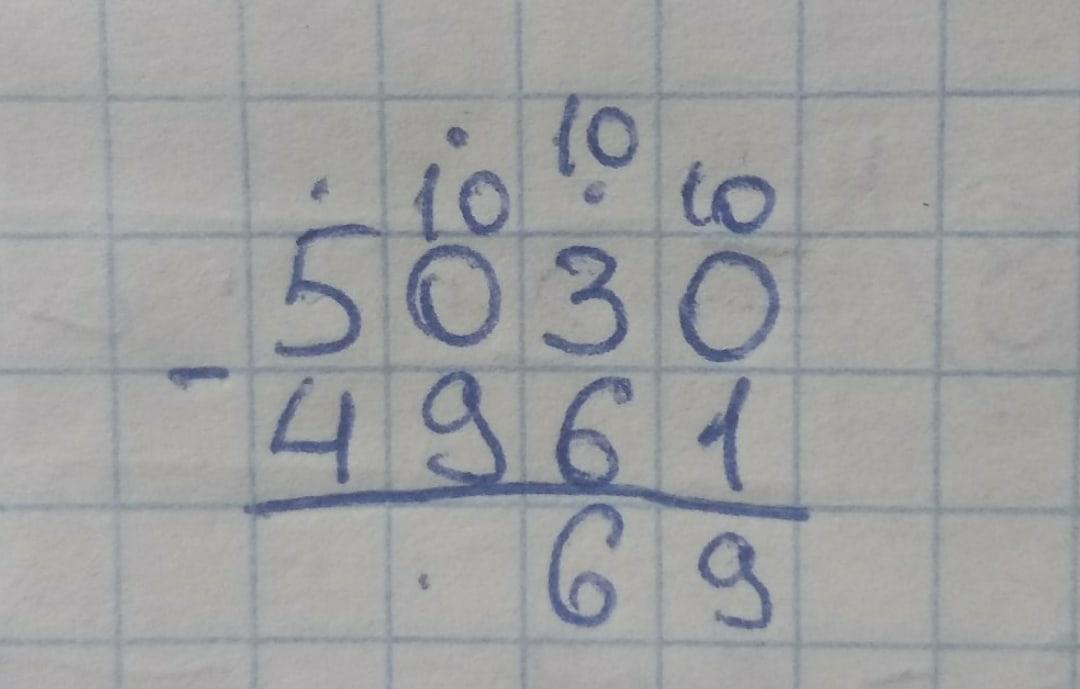 10
10 10
5030
- 4961
69